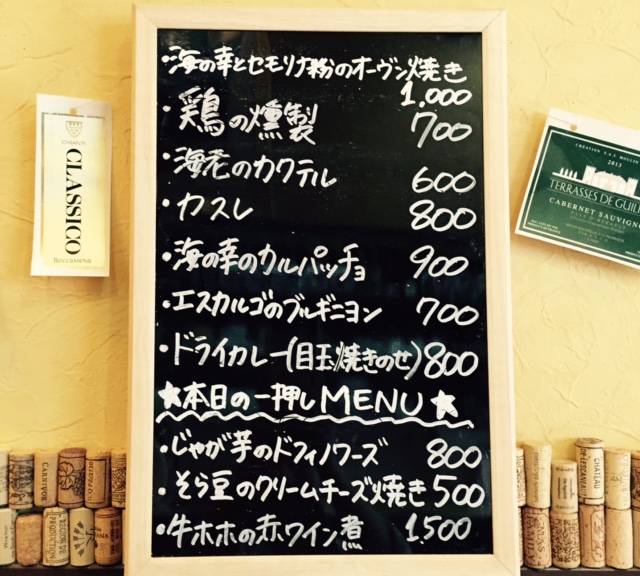 ・海の幸とセモリナ粉のオーヴン焼き
1,000
・鶏の燻製 700
・海老のカクテル 600
・カスレ 800
・海の幸のカルパッチョ 900
・エスカルゴのブルギニヨン 700
・ドライカレー(目玉焼きのせ) 800
★本日の一押しMENU★
・じゃが芋のドフィノワーズ 800
・そら豆のクリームチーズ焼き 500
・牛ホホの赤ワイン煮 1,500
CHIANTI
CLASSICO
ROCCAMENA
2013
TERRASSES DE
CABERNET
CARNIVOR
CHATEAU